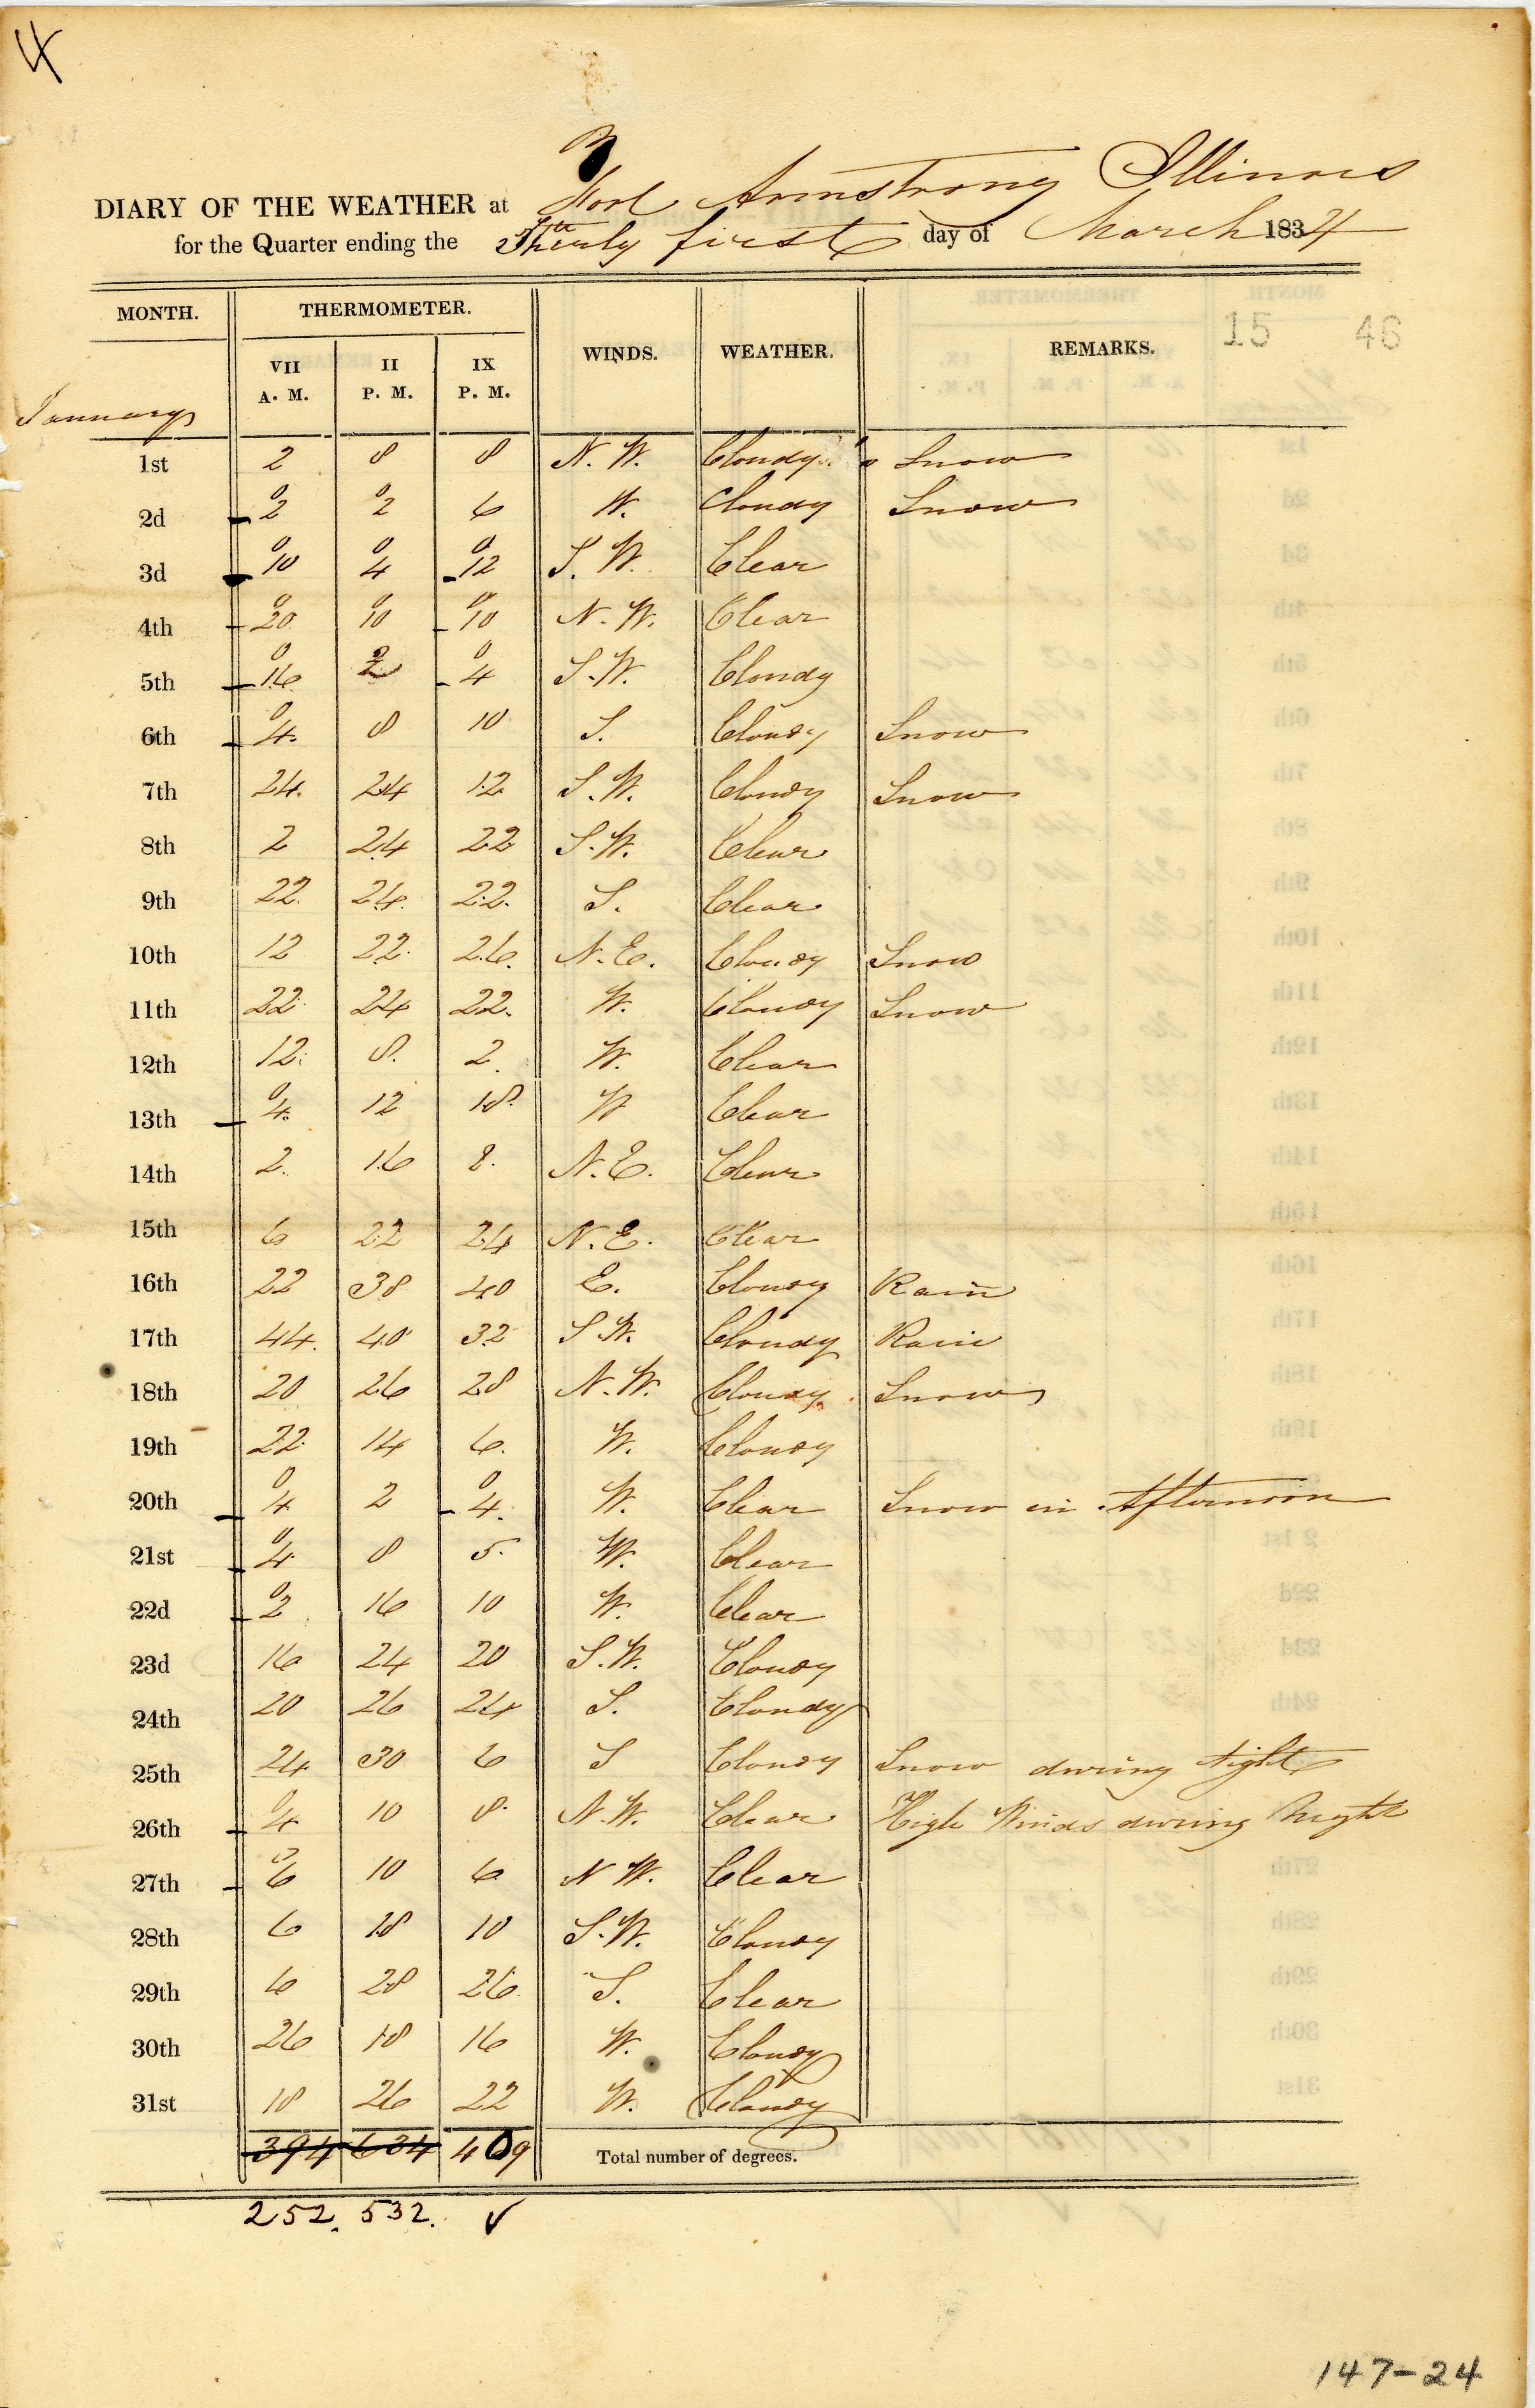 4
Fort Armstrong Illinois
DIARY OF THE WEATHER at
for the Quarter ending the Thirty first day of March 1834
MONTH. THERMOMETER. WINDS. WEATHER. REMARKS. 15 46
VII A. M. II P. M. IX P. M.
January
1st 2 8 8 N. W. Cloudy Snow
2d -2 2 6 W. Cloudy Snow
3d -10 4 -12 S. W. Clear
4th -20 10 -10 N. W. Clear
5th -16 2 -4 S. W. Cloudy
6th -4 8 10 S. Cloudy Snow
7th 24 24 12 S. W. Cloudy Snow
8th 2 24 22 S. W. Clear
9th 22 24 22 S. Clear
10th 12 22 26 N. E. Cloudy Snow
11th 22 24 22 W. Cloudy Snow
12th 12 8 2 W. Clear
13th -4 12 18 W Clear
14th 2 16 8 N. E. Clear
15th 6 22 24 N. E. Clear
16th 22 38 40 E. Cloudy Rain
17th 44 40 32 S. W. Cloudy Rain
18th 20 26 28 N. W. Cloudy Snow
19th 22 14 6 W. Cloudy
20th -4 2 -4 W. Clear Snow in Afternoon
21st -4 8 5 W. Clear
22d -2 16 10 W. Clear
23d 16 24 20 S. W. Cloudy
24th 20 26 24 S. Cloudy
25th 24 30 6 S Cloudy Snow during Night
26th -4 10 8 N. W. Clear High Winds during Night
27th -6 10 6 N W. Clear
28th 6 18 10 S. W. Cloudy
29th 6 28 26 S. Clear
30th 26 18 16 W. Cloudy
31st 18 26 22 W. Cloudy
394 634 409 Total number of degrees.
252. 532. ✓
147-24